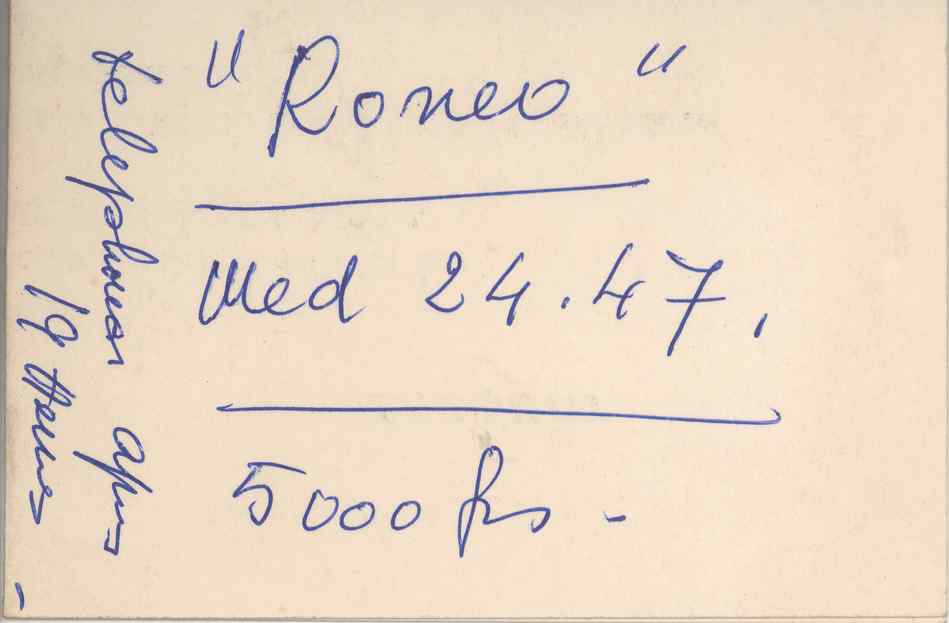 "Romeo"
Med 24.47.
5000 frs -
telephoner après
19 Heures -